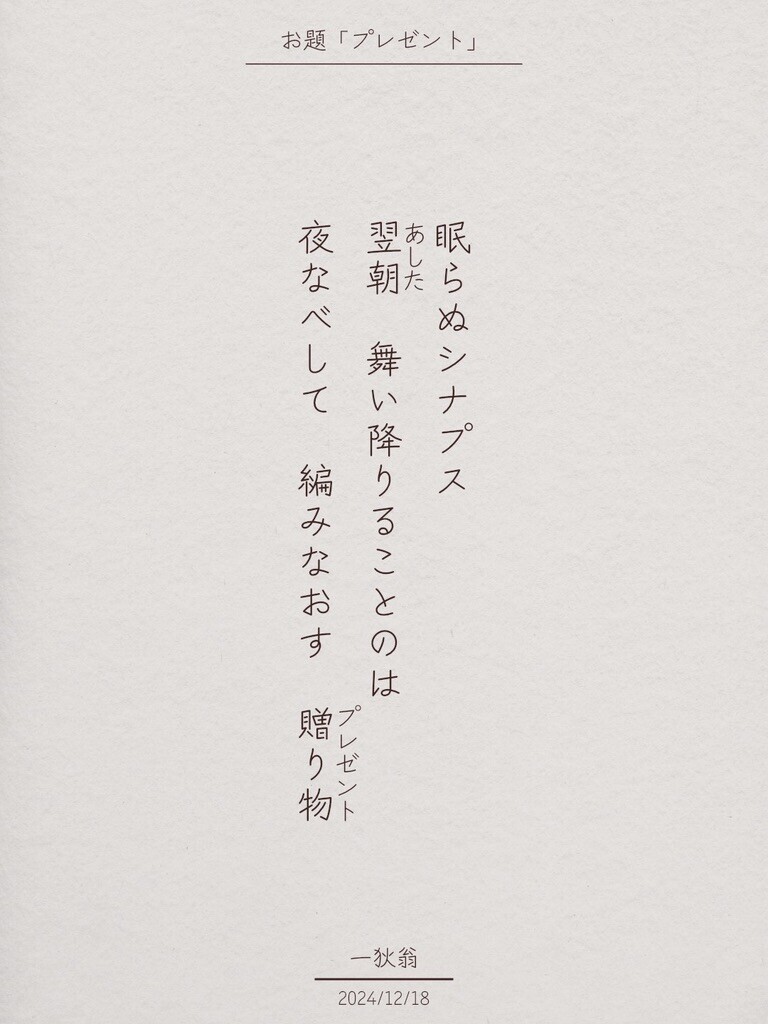 お題「プレゼント」
眠らぬシナプス
翌朝　舞い降りることのは
あした
夜なべして　編みなおす　贈り物
プレゼント
一狄翁
2024/12/18